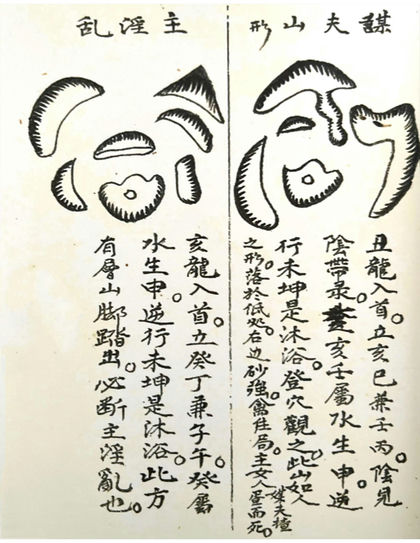 謀夫山形
丑龍入首。立亥巳兼壬丙。陰見
陰帶录。亥壬屬水生申。逆
行未坤是沐浴。登穴觀之。此山如人
之形落於低処。右边砂強。禽住局。主女人而死。
主淫乱
亥龍入首。立癸丁兼子午。癸屬
水生申。逆行未坤是沐浴。此方
有層山脚踏出。必断主淫亂也。